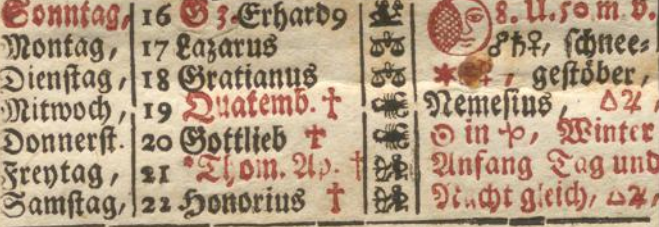 Sonntag, 16 G 3. Erhard9 8. U. 50 m v.
Montag, 17 Lazarus ♂♄♀, schnee⸗
Dienſtag, 18 Gratianus geſtöber,
Mitwoch, 19 Quatemb. † Nemeſius, △♃,
Donnerſt. 20 Gottlieb † ☉ in ♑, Winter
Freytag, 21 Thom. Ap. † Anfang Tag und
Samſtag, 22 Honorius † Nacht gleich, △♃,